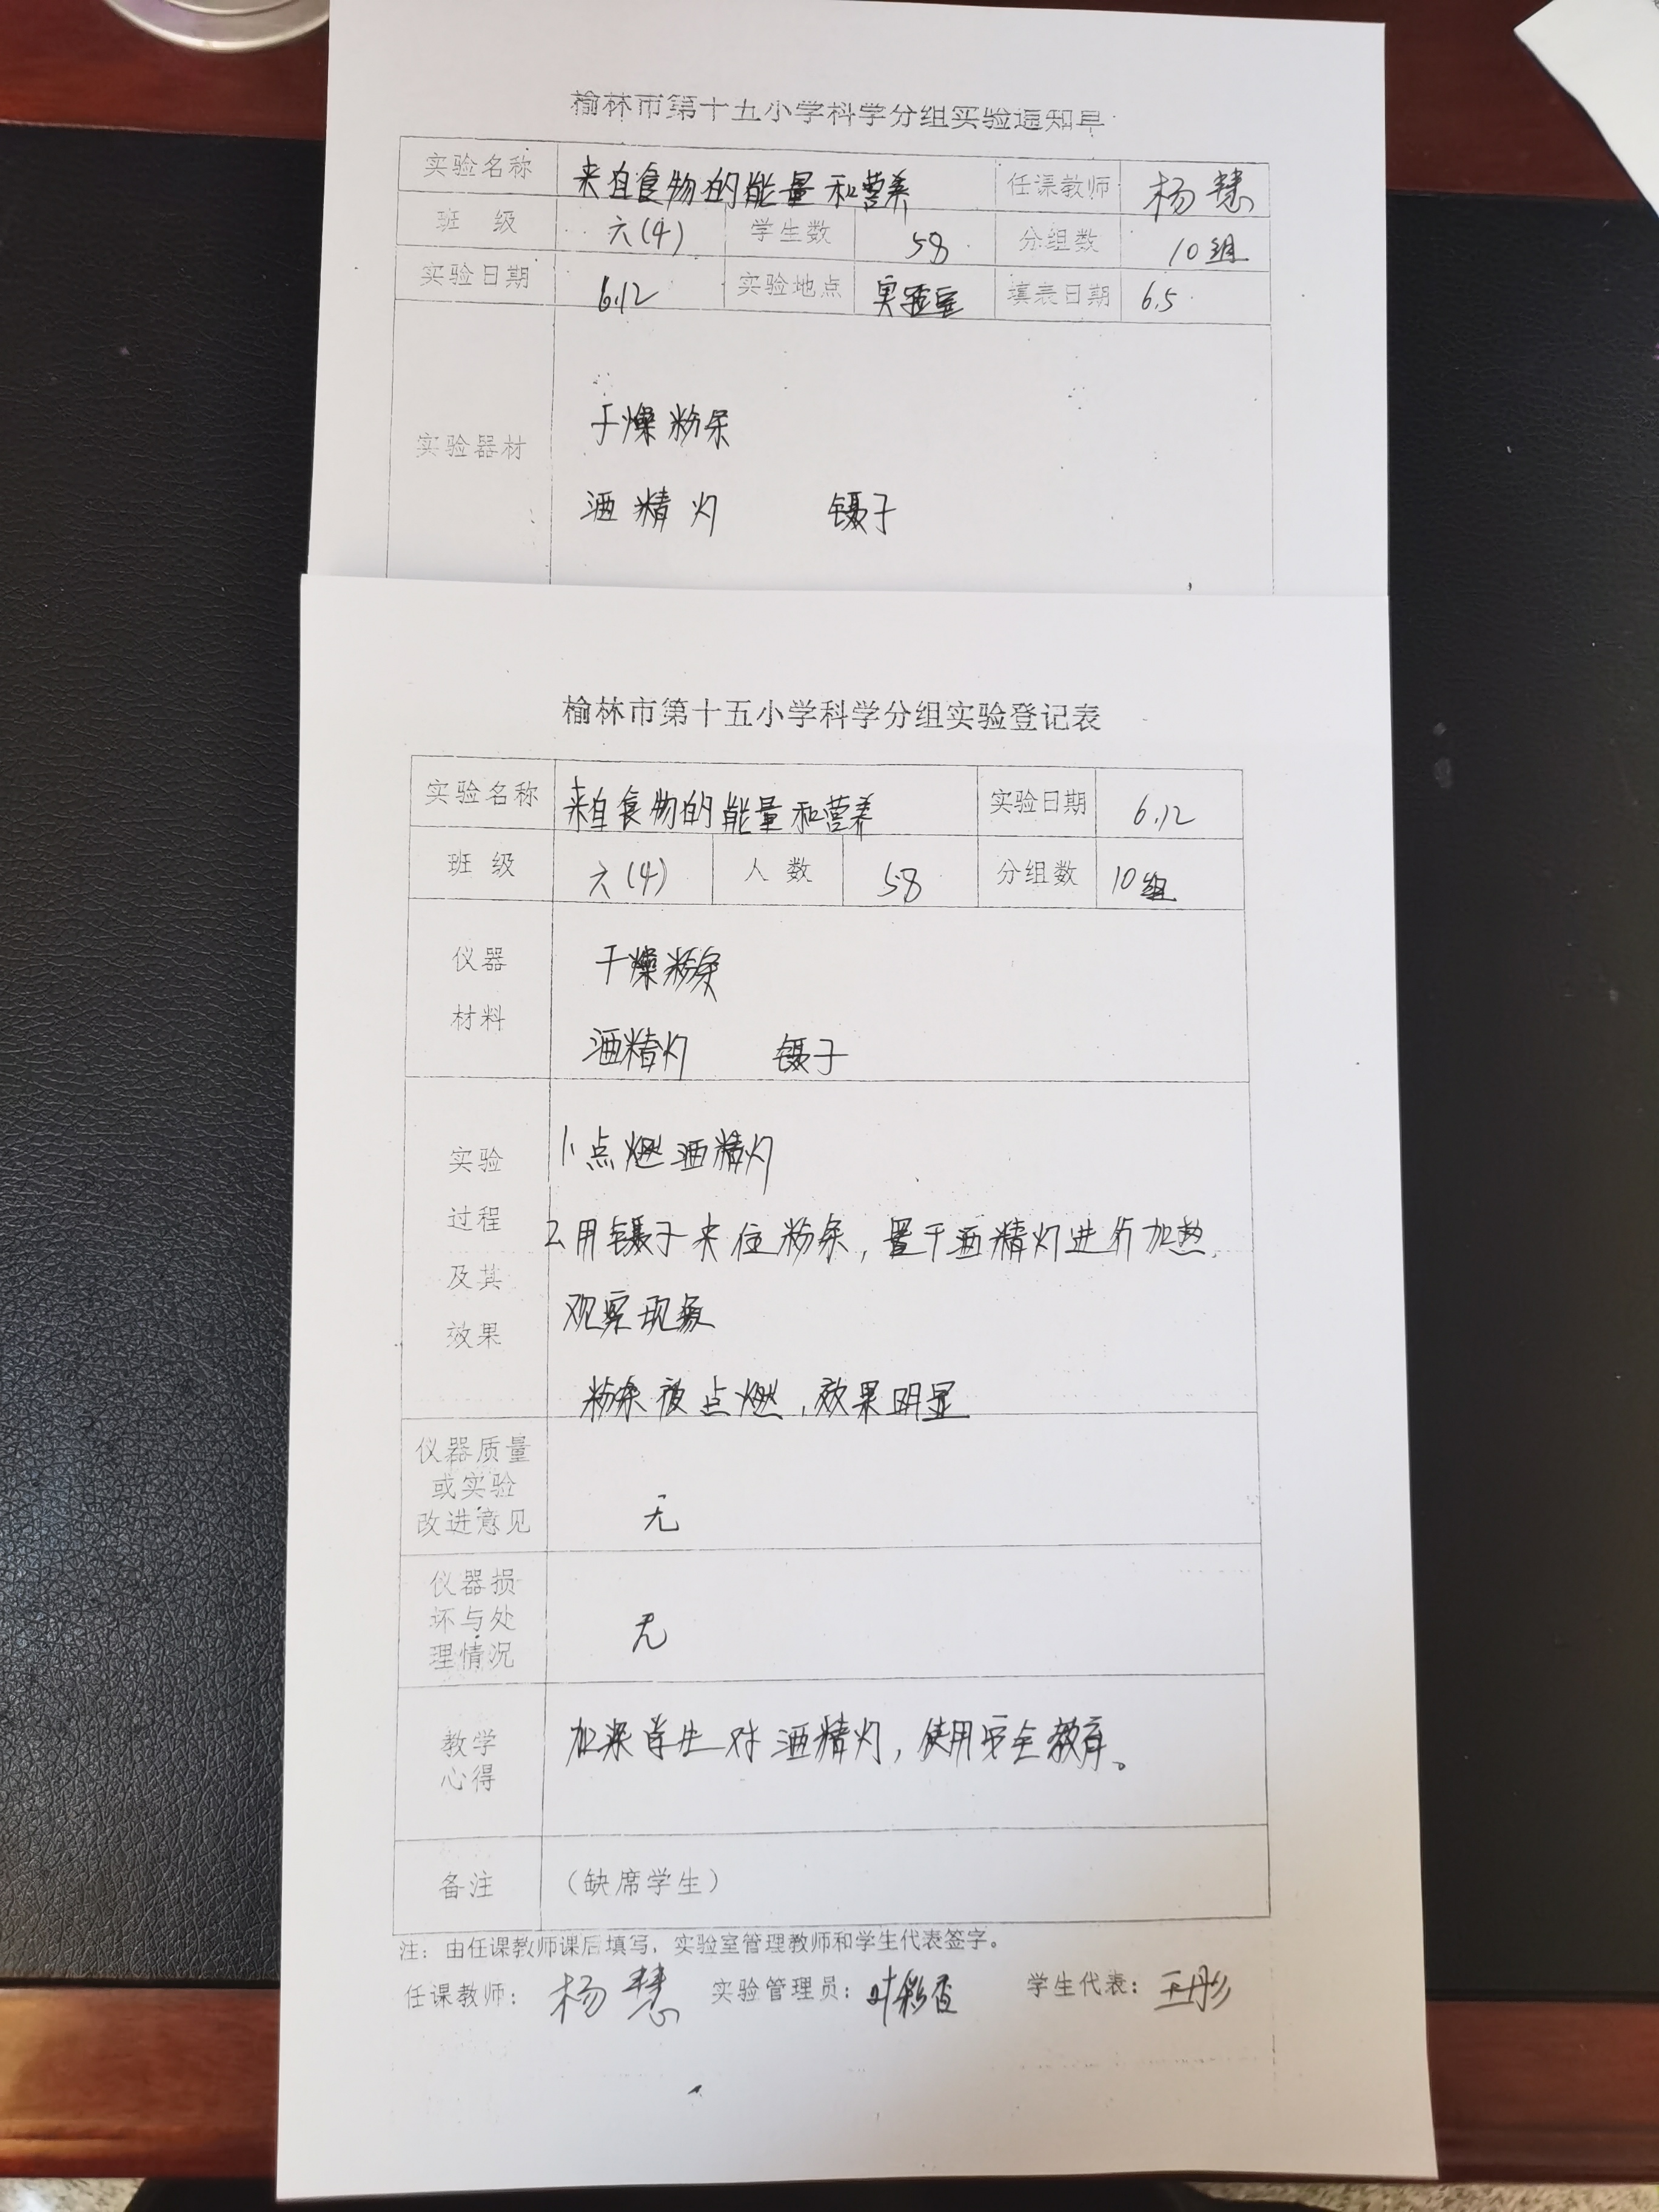 榆林市第十五小学科学分组实验通知单
实验名称 来自食物的能量和营养 任课教师 杨慧
班 级 六(4) 学生数 58 分组数 10组
实验日期 6.12 实验地点 实验室 填表日期 6.5
实验器材
干燥粉条
酒精灯 镊子
榆林市第十五小学科学分组实验登记表
实验名称 来自食物的能量和营养 实验日期 6.12
班 级 六(4) 人 数 58 分组数 10组
仪器
材料
干燥粉条
酒精灯 镊子
实验
过程
及其
效果
1、点燃酒精灯
2、用镊子夹住粉条,置于酒精灯进行加热,
观察现象
粉条被点燃,效果明显
仪器质量
或实验
改进意见
无
仪器损
坏与处
理情况
无
教学
心得
加深学生对酒精灯,使用安全教育。
备注 (缺席学生)
注:由任课教师课后填写,实验室管理教师和学生代表签字。
任课教师: 杨慧 实验管理员: 学生代表: 王彤